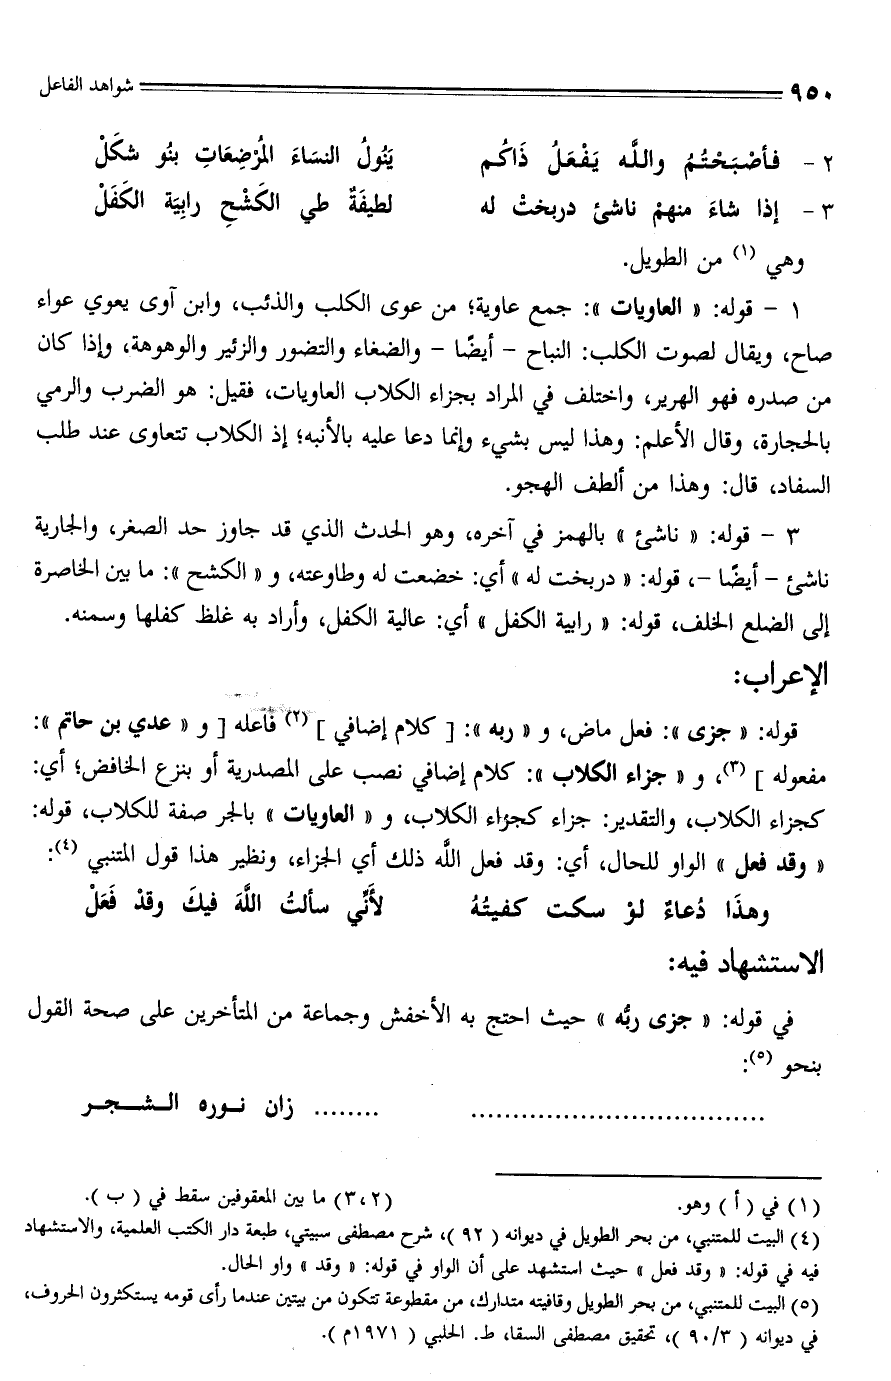 ٩٥٠ شواهد الفاعل
٢ - فأصْبَحْتُمُ واللَّه يَفْعَلُ ذَاكُم يَنُولُ النسَاءَ المُرْضِعَاتِ بنُو شكَلْ
٣ - إذا شاءَ منهمْ ناشئ دربختْ له لطيفَةٌ طي الكَشْحِ رابِيَة الكَفَلْ
وهي (١) من الطويل.
١ - قوله: « العاويات »: جمع عاوية؛ من عوى الكلب والذئب، وابن آوى يعوي عواء
صاح، ويقال لصوت الكلب: النباح - أيضًا - والضغاء والتضور والزئير والوهوهة، وإذا كان
من صدره فهو الهرير، واختلف في المراد بجزاء الكلاب العاويات، فقيل: هو الضرب والرمي
بالحجارة، وقال الأعلم: وهذا ليس بشيء وإنما دعا عليه بالأنبه؛ إذ الكلاب تتعاوى عند طلب
السفاد، قال: وهذا من ألطف الهجو.
٣ - قوله: « ناشئ » بالهمز في آخره، وهو الحدث الذي قد جاوز حد الصغر، والجارية
ناشئ - أيضًا -، قوله: « دربخت له » أي: خضعت له وطاوعته، و « الكشح »: ما بين الخاصرة
إلى الضلع الخلف، قوله: « رابية الكفل » أي: عالية الكفل، وأراد به غلظ كفلها وسمنه.
الإعراب:
قوله: « جزى »: فعل ماض، و « ربه »: [ كلام إضافي ] (٢) فاعله [ و « عدي بن حاتم »:
مفعوله ] (٣)، و « جزاء الكلاب »: كلام إضافي نصب على المصدرية أو بنزع الخافض؛ أي:
كجزاء الكلاب، والتقدير: جزاء كجزاء الكلاب، و « العاويات » بالجر صفة للكلاب، قوله:
« وقد فعل » الواو للحال، أي: وقد فعل اللَّه ذلك أي الجزاء، ونظير هذا قول المتنبي (٤):
وهذَا دُعاءٌ لوْ سكت كفيتُهُ لأَنِّي سألتُ اللَّهَ فيكَ وقدْ فَعَلْ
الاستشهاد فيه:
في قوله: « جزى ربُّه » حيث احتج به الأخفش وجماعة من المتأخرين على صحة القول
بنحو (٥):
................................... ........ زان نوره الشجر
(١) في ( أ ) وهو. (٢، ٣) ما بين المعقوفين سقط في ( ب ).
(٤) البيت للمتنبي، من بحر الطويل في ديوانه ( ٩٢ )، شرح مصطفى سبيتي، طبعة دار الكتب العلمية، والاستشهاد
فيه في قوله: « وقد فعل » حيث استشهد على أن الواو في قوله: « وقد » واو الحال.
(٥) البيت للمتنبي، من بحر الطويل وقافيته متدارك، من مقطوعة تتكون من بيتين عندما رأى قومه يستكثرون الحروف،
في ديوانه ( ٩٠/٣ )، تحقيق مصطفى السقا، ط. الحلبي ( ١٩٧١م ).